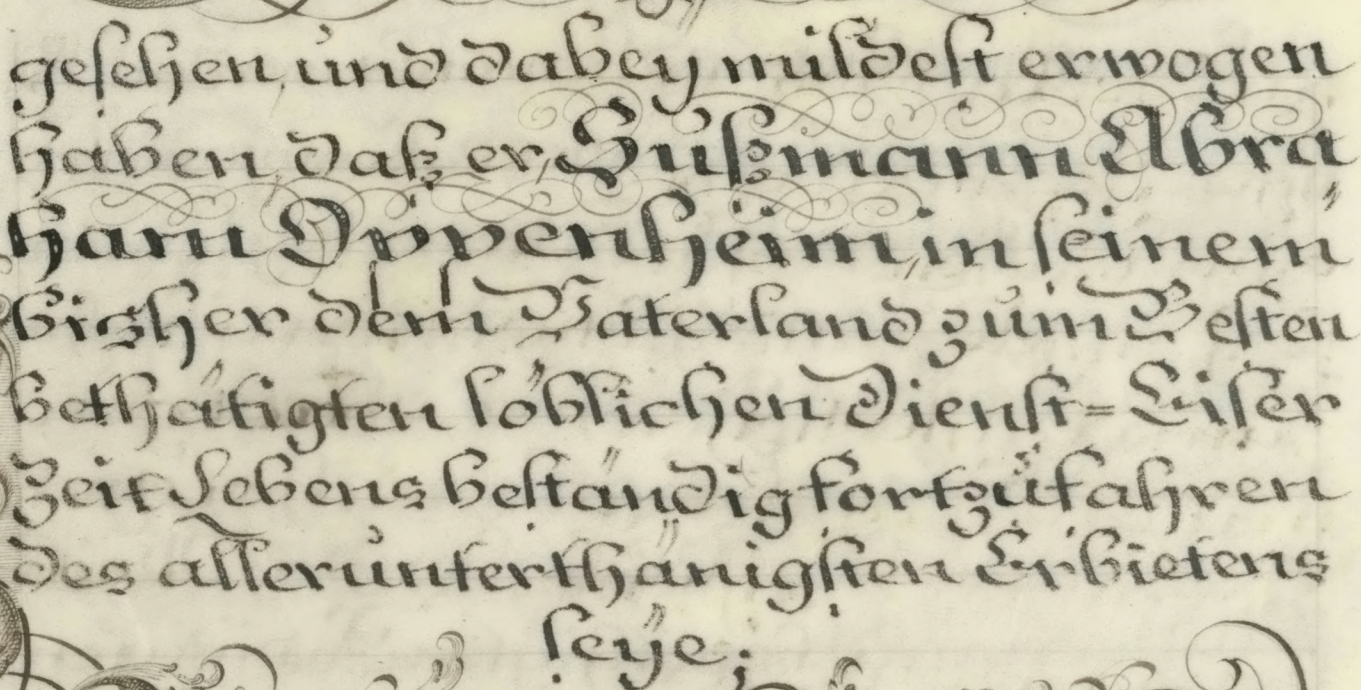 gesehen, und dabey mildest erwogen
haben, daß er, Süßmann Abra„
ham Oppenheim, in seinem
bisher dem Vaterland zum Besten
bethätigten löblichen Dienst=Eifer
Zeit Lebens beständig fortzufahren
des allerunterthänigsten Erbietens
seye;